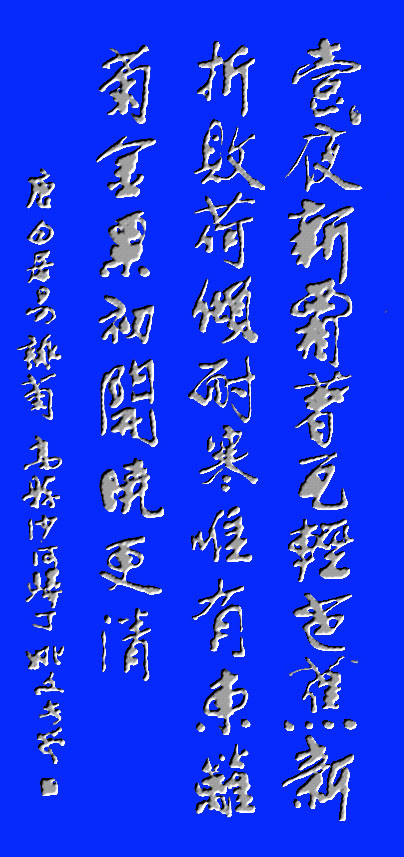 壹夜新霜著瓦輕芭蕉新
折敗荷傾耐寒唯有東籬
菊金粟初開曉更清
唐白居易詠菊 高縣沙河驛